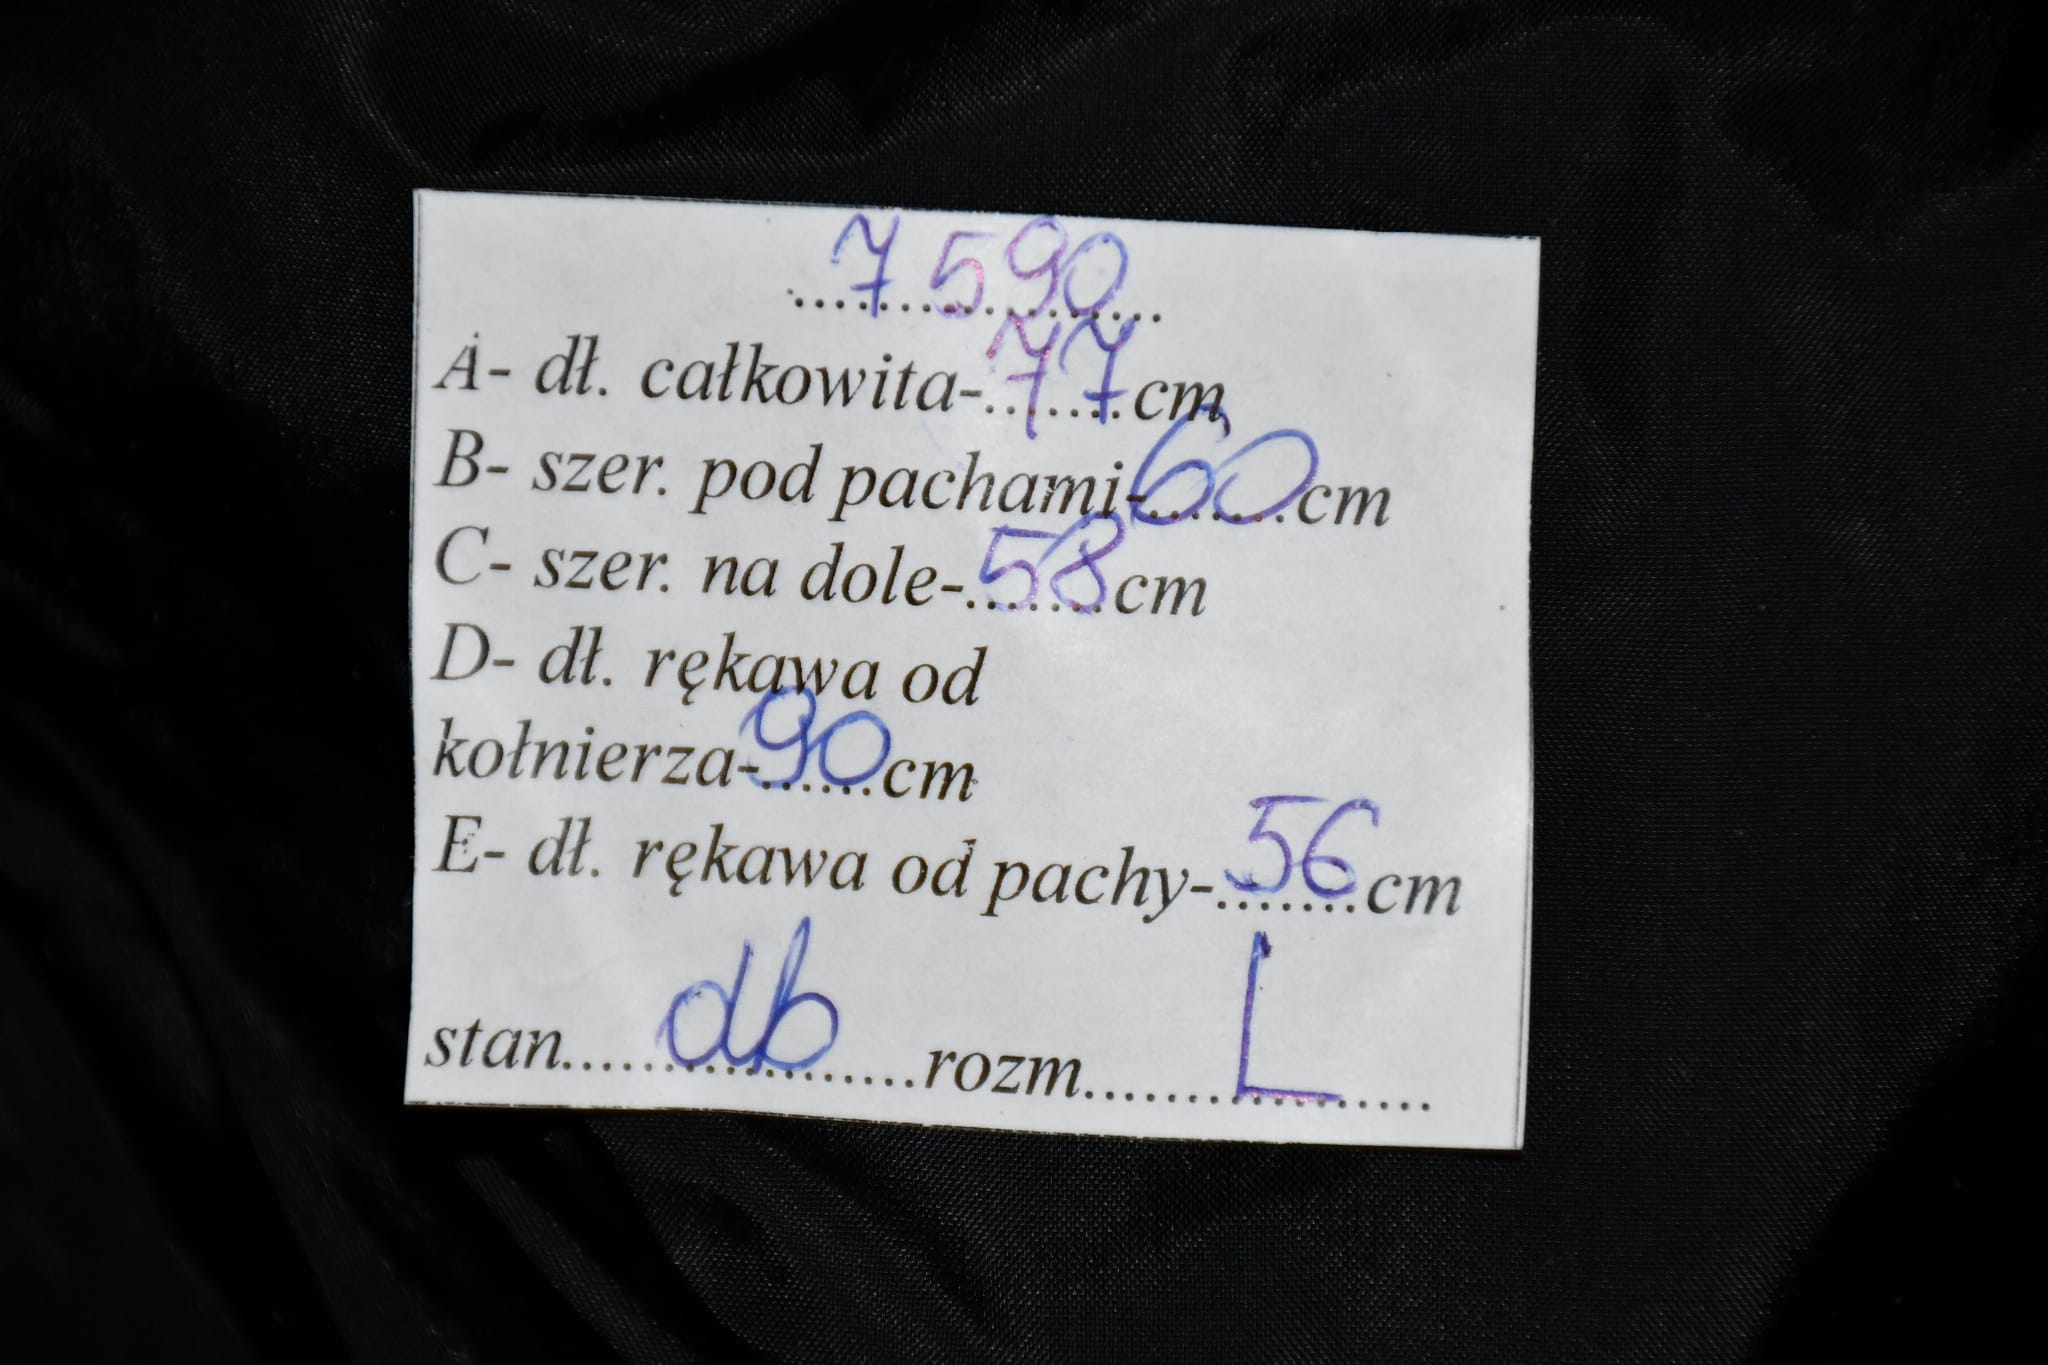 7590
A- dł. całkowita-77cm
B- szer. pod pachami-60cm
C- szer. na dole-58cm
D- dł. rękawa od
kołnierza-90cm
E- dł. rękawa od pachy-56cm
stan.....db.....rozm.....L.....